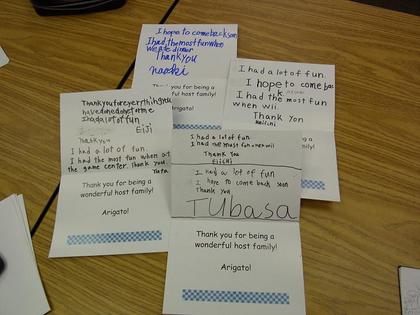 I hope to come back soon
I had the most fun when
we ate dinner
Thank you
naoki
Thank you for being a
host family!
I had a lot of fun.
I hope to come bac
I had the most fun
when wii.
Thank You
Thank you for everything you
have done for me
I had a lot of fun
EiJi
Thank you
I had a lot of fun.
I had the most fun when at
the game center. Thank you.
Thank you for being a
wonderful host family!
Arigato!
I had a lot of fun
I had the most fun when wii
Thank you
EiICHi
I had a lot of fun
I hope to come back soon
Thank you
TUbasa
Thank you for being a
wonderful host family!
Arigato!